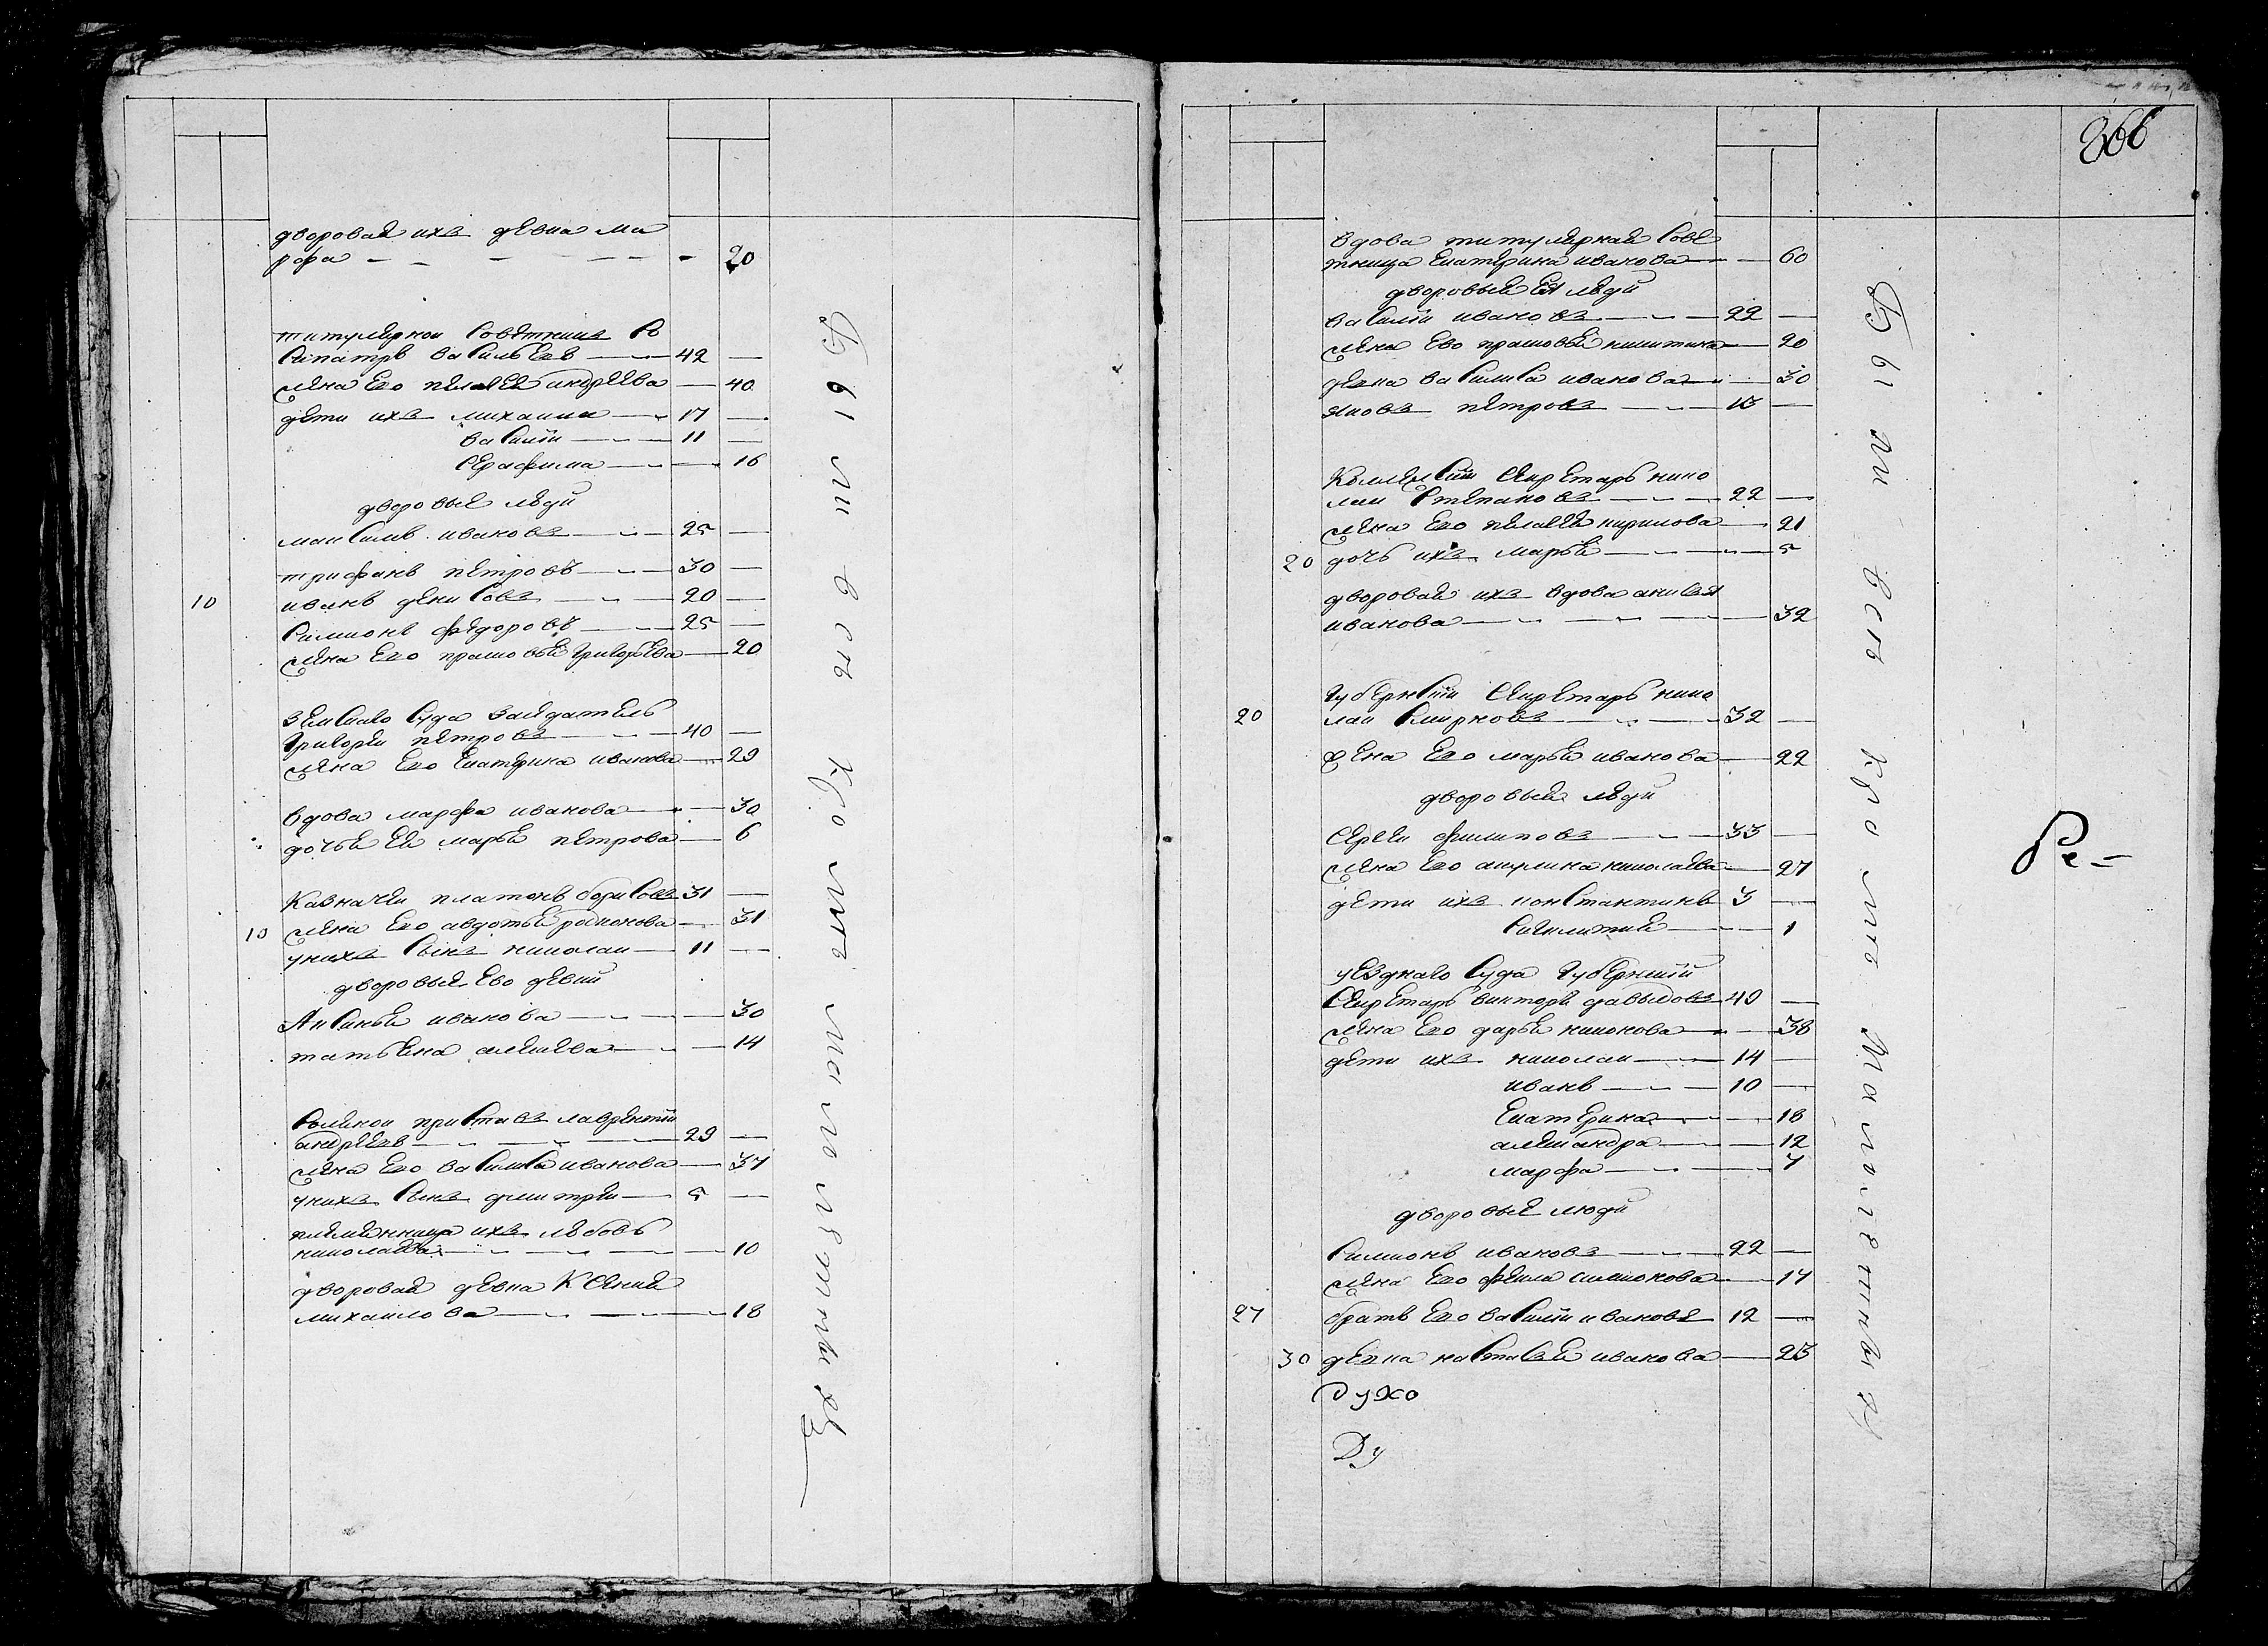 дворовая ихъ девка ма
рфа — 20
титулярной советникъ со
сипатръ васильевъ — 42 —
жена его пелагея андреева — 40
дети ихъ михаила — 17 —
василий — 11 —
серафима — 16
дворовые люди
максимъ ивановъ — 25 —
трифанъ петровъ — 30 —
10 иванъ денисовъ — 20 —
симионъ федоровъ — 25 —
жена его прасковья григорьева — 20
земскаго суда заседатель
григорей петровъ — 40 —
жена его екатерина иванова — 29
вдова марфа иванова — 30
дочь ея марья петрова — 6
казначей платонъ борисовъ 31 —
10 жена его авдотья родионова — 31
у нихъ сынъ николаи — 11 —
дворовыя ево девки
Аксинья иванова — 30
татьяна алексева — 14
соляной приставъ лаврентий
андреевъ — 29 —
жена его василиса иванова — 37
у нихъ сынъ дмитрей — 5 —
племянница ихъ любовь
николаева — 10
дворовая девка Ксения
михаилова — 18
Были въ сть Кро ме малолетных
366
вдова титулярная сове
тница екатерина иванова — 60
дворовыя ея люди
василий ивановъ — 22 —
жена ево прасковья никитина — 20
девка василиса иванова — 30
яковъ петровъ — 13 —
Коллежский секретарь нико
лаи степановъ — 22 —
жена его пелагея кирилова — 21
20 дочь ихъ марья — 5
дворовая ихъ вдова анисья
иванова — 32
губернский секретарь нико
20 лаи смирновъ — 32 —
жена его марья иванова — 22
дворовыя люди
сергеи филиповъ — 33 —
жена его акулина николаева — 27
дети ихъ константинъ 3 —
1
уезднаго суда губернский
секретарь викторъ давыдовъ 49 —
жена его дарья никонова — 38
дети ихъ николаи — 14 —
иванъ — 10 —
екатерина — 18
александра — 12
марфа — 7
дворовыя люди
симионъ ивановъ — 22 —
жена его фекла симионова — 17
27 братъ его василий ивановъ 12 —
30 девка настасья иванова — 23
Духо
Ду
Были въ сть кроме Малолетныхъ
Ре-